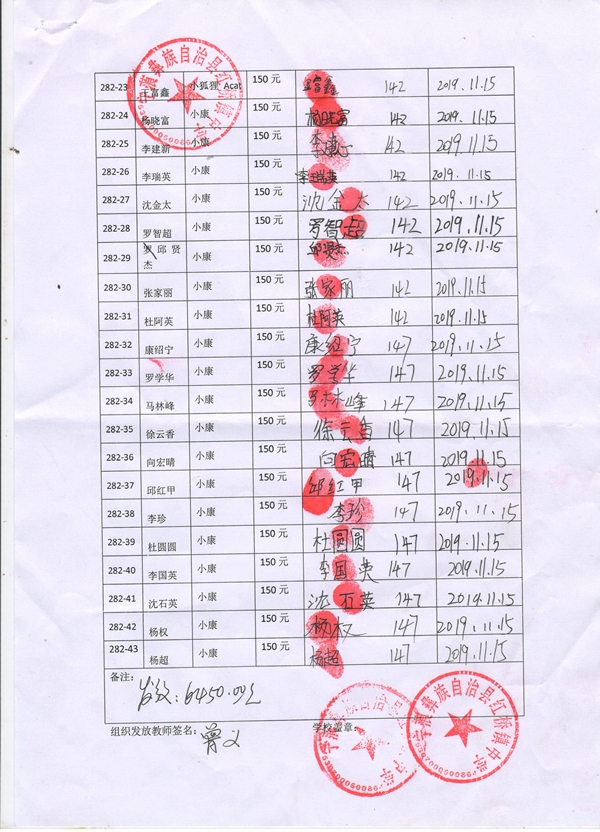 宁蒗彝族自治县红桥镇中学
282-23 王富鑫 小狐狸 Acat 150元 王富鑫 142 2019.11.15
282-24 杨晓富 小康 150元 杨晓富 142 2019.11.15
282-25 李建新 小康 150元 142 2019.11.15
282-26 李瑞英 小康 150元 李瑞英 142 2019.11.15
282-27 沈金太 小康 150元 沈金太 142 2019.11.15
282-28 罗智超 小康 150元 罗智超 142 2019.11.15
282-29 罗邱贤 小康 150元 邱贤杰 142 2019.11.15
杰
282-30 张家丽 小康 150元 张家丽 142 2019.11.15
282-31 杜阿英 小康 150元 杜阿英 142 2019.11.15
282-32 康绍宁 小康 150元 康绍宁 147 2019.11.15
282-33 罗学华 小康 150元 罗学华 147 2019.11.15
282-34 马林峰 小康 150元 马林峰 147 2019.11.15
282-35 徐云香 小康 150元 徐云香 147 2019.11.15
282-36 向宏晴 小康 150元 向宏晴 147 2019.11.15
282-37 邱红甲 小康 150元 邱红甲 147 2019.11.15
282-38 李珍 小康 150元 李珍 147 2019.11.15
282-39 杜圆圆 小康 150元 杜圆圆 147 2019.11.15
282-40 李国英 小康 150元 李国英 147 2019.11.15
282-41 沈石英 小康 150元 沈石英 147 2019.11.15
282-42 杨权 小康 150元 杨权 147 2019.11.15
282-43 杨超 小康 150元 杨超 147 2019.11.15
备注：
发放：6450.00元
组织发放教师签名： 学校盖章：
宁蒗彝族自治县红桥镇中学
宁蒗彝族自治县红桥镇中学